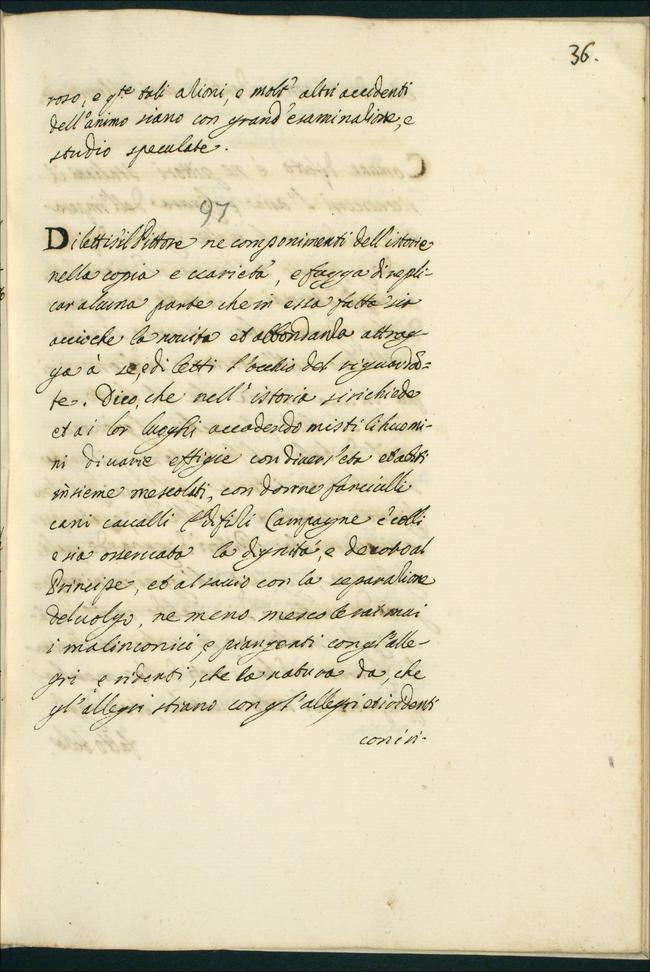 36.
roso, e q.te tali azioni, e molt' altri accidenti
dell'animo siano con grand'esaminazione, e
studio speculate.
97
Dilettisi il Pittore ne componimenti dell'istorie
nella copia e uarietà, e fugga di repli-
car alcuna parte che in essa fatta sia
accioche la nouità et abbondanza attrag-
ga à se, e diletti l'occhio del riguardã=
te. Dico, che nell'istoria si richiede
et a i lor luoghi accadendo misti li huomi-
ni di uarie effigie con diuers'età et abiti
insieme mescolati, con donne fanciulli
cani caualli Edifizii Campagne e colli
e sia osseruata la dignità, e decoro al
Principe, et al sauio con la separazione
del uolgo, ne meno mescolerai mai
i malinconici, e piangenti con gl'alle-
gri e ridenti, che la natura da, che
gl'allegri stiano con gl'allegri et i ridenti
con i ri-